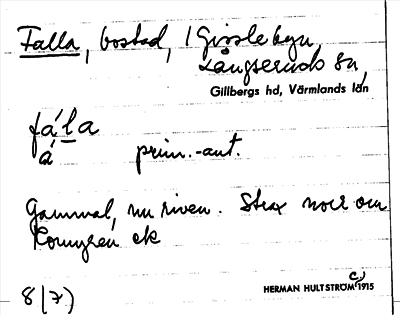 Falla, bostad, i Gisslebyn,
Långseruds sn,
Gillbergs hd, Värmlands län
fá'la
à prim.-ant.
Gammal, nu riven. Strax norr om
Kornyren ek
8(7)
HERMAN HULTSTRÖM c.) 1915